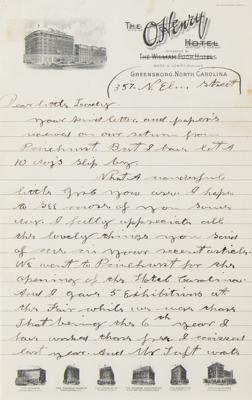 THE
O.Henry
HOTEL
OPERATED BY
THE WILLIAM FOOR HOTELS
GREENSBORO, NORTH CAROLINA
357 N. Elm street
Dear little Lovely
your kind letter and paper's
received on our return from
Pinehurst But I have let
10 day's slip by.
What A wonderful
little you are I hope
to see more of you some
day. I fully appreciate all
the lovely things you said
of me in your recent article.
We went to Pinehurst for the
opening of the Hotel Carolina.
And I gave 5 Exhibitions at
the Fair, while we was there
That being the 6th year I
have worked there for I missed
last year. And Mr Taft wants